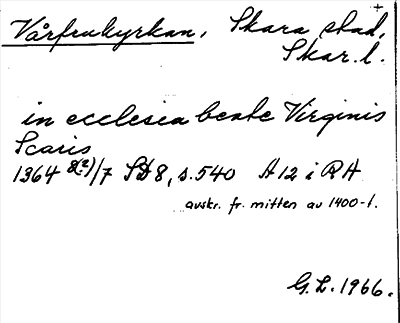 Vårfrukyrkan, Skara stad,
Skar. l.
in ecclesia beate Virginis
Scaris
1364 8(?)/7 SD 8, s. 540 A 12 i RA
avskr. fr. mitten av 1400-t.
G. L. 1966.